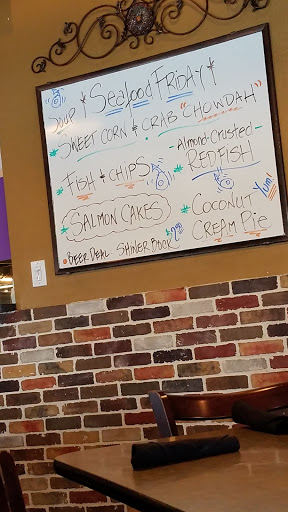 * Seafood Friday *
Soup
* Sweet Corn & Crab "Chowdah"
- Almond-Crusted -
Redfish
* Fish & Chips
* Salmon Cakes
* Coconut
Cream Pie
Yum!
Beer Deal Shiner Bock